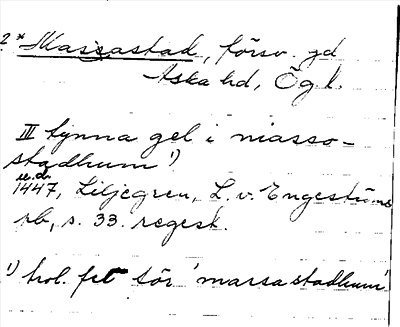 ? *Massastad, försv. gd
Aska hd, Ög l.
III tynna gel i masso-
stadhum ¹)
u.d.
1447, Liljegren, L. v. Engeströms
rb, s. 33. regest.
¹) trol. fel för 'marsastadhum'.